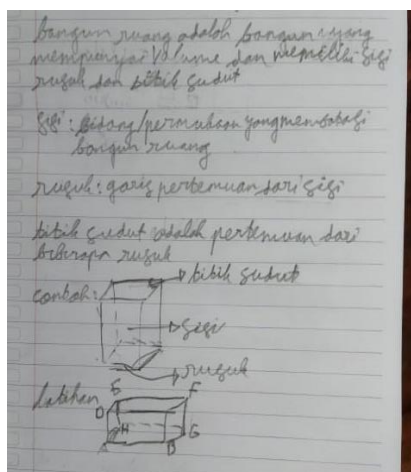 bangun ruang adalah bangun yang
mempunyai volume dan memiliki sisi
rusuk dan titik sudut
sisi : bidang/permukaan yang membatasi
bangun ruang
rusuk : garis pertemuan dari sisi
titik sudut adalah pertemuan dari
beberapa rusuk
contoh :
titik sudut
sisi
rusuk
latihan
E
F
D
H
G
A
B